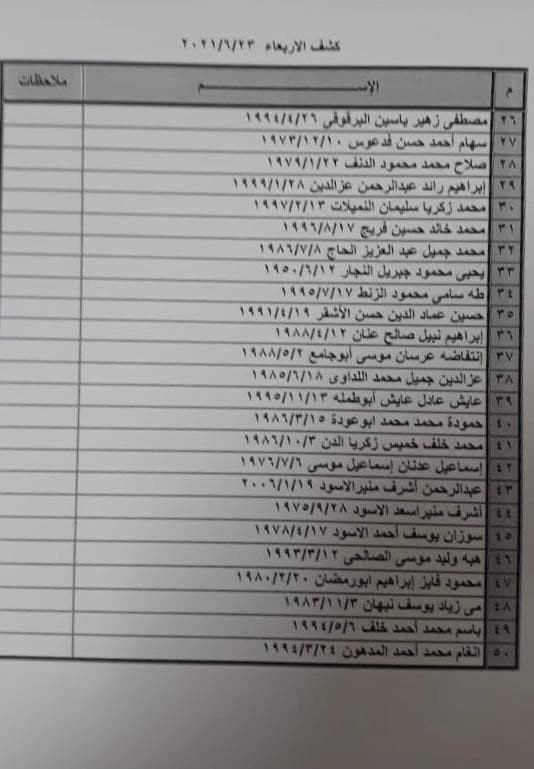 كشف الاربعاء ٢٠٢١/٦/٢٣
م الإســـــم ملاحظات
٢٦ مصطفى زهير ياسين البرقوقي ١٩٩٤/٤/٢٦
٢٧ سهام أحمد حسن قدعوس ١٩٧٣/١٢/١٠
٢٨ صلاح محمد محمود الدنف ١٩٧٩/١/٢٢
٢٩ إبراهيم رائد عبدالرحمن عزالدين ١٩٩٩/١/٢٨
٣٠ محمد زكريا سليمان النميلات ١٩٩٧/٢/١٣
٣١ محمد خالد حسين فريج ١٩٩٦/٨/١٧
٣٢ محمد جميل عبد العزيز الحاج ١٩٨٦/٧/٨
٣٣ يحيى محمود جبريل النجار ١٩٥٠/٦/١٢
٣٤ طه سامي محمود الزنط ١٩٩٥/٧/١٧
٣٥ حسين عماد الدين حسن الأشقر ١٩٩١/٤/١٩
٣٦ إبراهيم نبيل صالح عنان ١٩٨٨/٤/١٢
٣٧ إنتفاضه عرسان موسى أبوجامع ١٩٨٨/٥/٢
٣٨ عزالدين جميل محمد اللداوى ١٩٨٥/٦/١٨
٣٩ عايش عادل عايش أبوطمله ١٩٩٥/١١/١٣
٤٠ حمودة محمد محمد ابوعودة ١٩٨٦/٣/١٥
٤١ محمد خلف خميس زكريا الدن ١٩٨٦/١٠/٣
٤٢ إسماعيل عدنان إسماعيل موسى ١٩٧٦/٧/٦
٤٣ عبدالرحمن أشرف منيرالاسود ٢٠٠٦/١/١٩
٤٤ أشرف منيراسعد الاسود ١٩٧٥/٩/٢٨
٤٥ سوزان يوسف أحمد الاسود ١٩٧٨/٤/١٧
٤٦ هبه وليد موسى الصالحى ١٩٩٣/٣/١٢
٤٧ محمود فايز إبراهيم ابورمضان ١٩٨٠/٢/٢٠
٤٨ مى زياد يوسف نبهان ١٩٨٣/١١/٣
٤٩ باسم محمد أحمد خلف ١٩٩٤/٥/٦
٥٠ انغام محمد أحمد المدهون ١٩٩٤/٣/٢٤